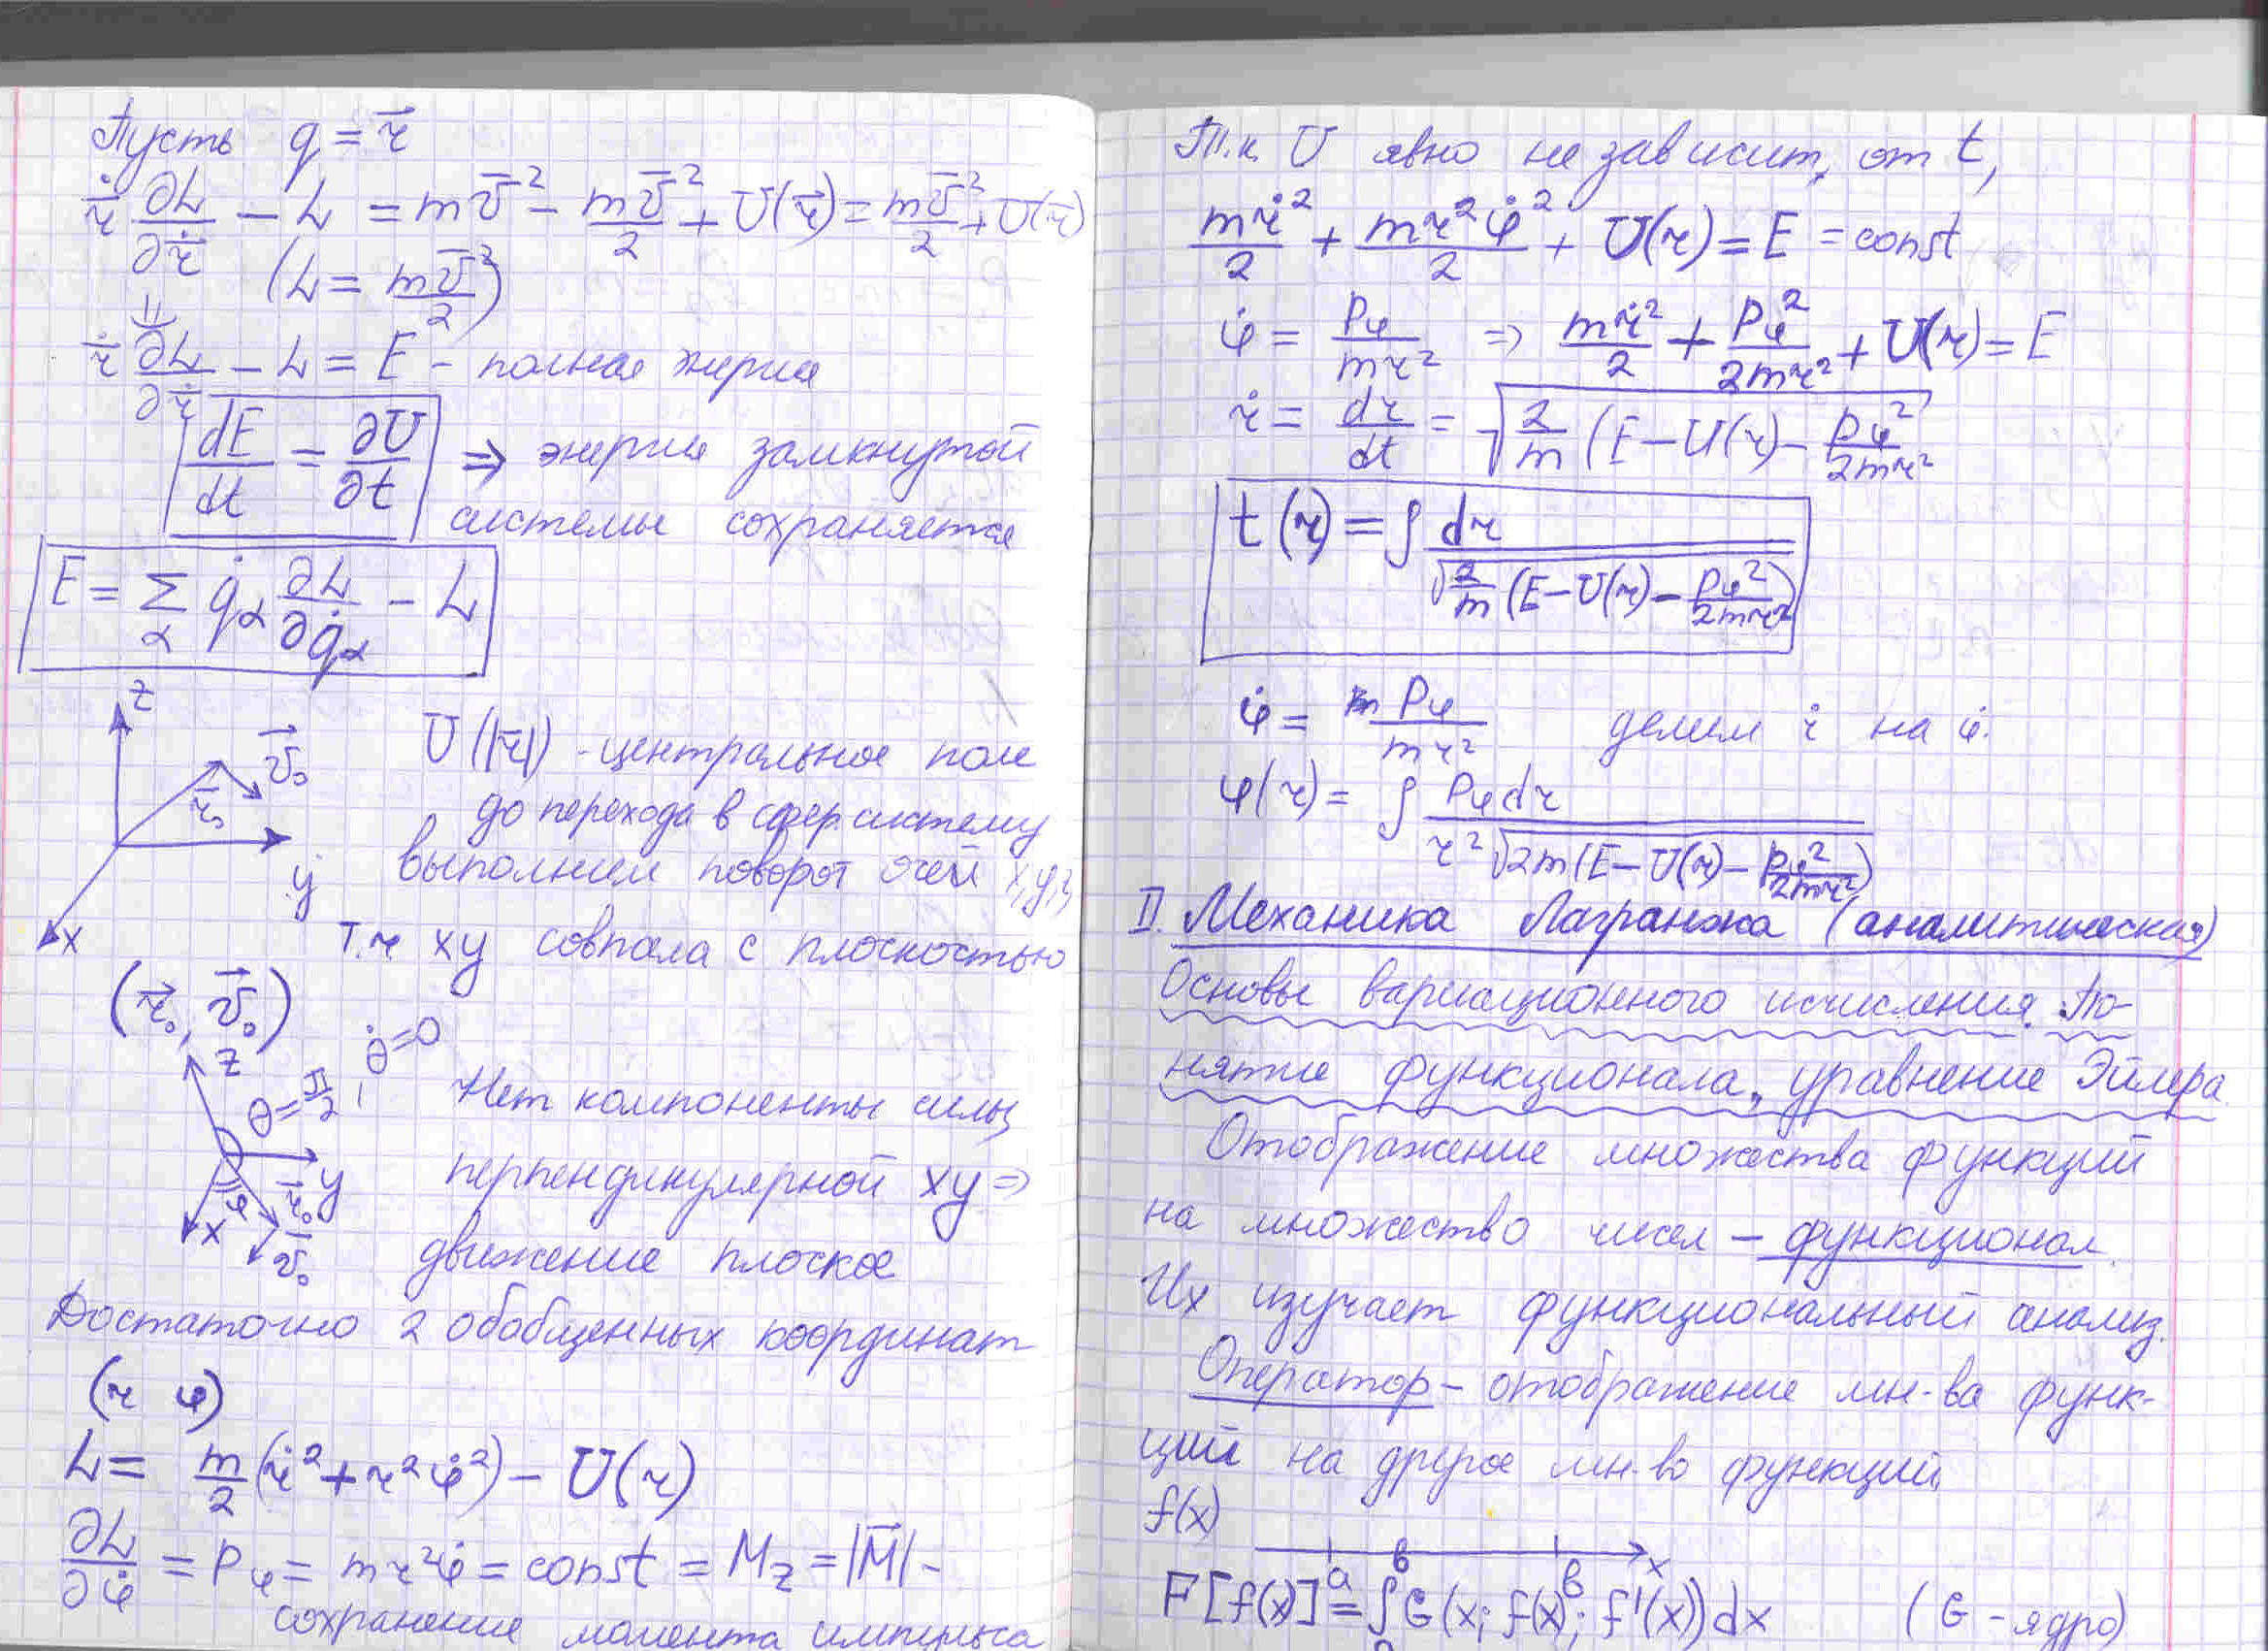 Пусть q = r⃗
ṙ ∂L/∂ṙ − L = mv̄² − mv̄²/2 + U(r⃗) = mv̄²/2 + U(r⃗)
(L = mv̄²/2)
ṙ ∂L/∂ṙ − L = E − полная энергия
dE/dt = ∂U/∂t ⇒ энергия замкнутой
системы сохраняется
E = Σ_α q̇_α ∂L/∂q̇_α − L
z
v⃗₀
r⃗₀
y
x
U(|r⃗|) - центральное поле
до перехода в сфер. систему
выполним поворот осей x,y,z
т.ч xy совпала с плоскостью
(r⃗₀, v⃗₀)
z
θ = π/2, θ̇ = 0
y
x
φ
r̄₀
v̄₀
Нет компоненты силы,
перпендикулярной xy ⇒
движение плоское
Достаточно 2 обобщенных координат
(r φ)
L = m/2 (ṙ² + r²φ̇²) − U(r)
∂L/∂φ̇ = p_φ = mr²φ̇ = const = M_z = |M̄| −
сохранение момента импульса
Т.к. U явно не зависит от t,
mṙ²/2 + mr²φ̇²/2 + U(r) = E = const
φ̇ = p_φ/mr² ⇒ mṙ²/2 + p_φ²/2mr² + U(r) = E
ṙ = dr/dt = √(2/m (E − U(r) − p_φ²/2mr²
t(r) = ∫ dr/√(2/m (E − U(r) − p_φ²/2mr²))
φ̇ = p_φ/mr² делим ṙ на φ̇.
φ(r) = ∫ p_φ dr/r²√(2m(E − U(r) − p_φ²/2mr²))
II. Механика Лагранжа (аналитическая)
Основы вариационного исчисления. По-
нятие функционала, уравнение Эйлера.
Отображение множества функций
на множество чисел – функционал.
Их изучает функциональный анализ.
Оператор – отображение мн-ва функ-
ций на другое мн-во функций
f(x)
a в x
F[f(x)] = ∫ₐᵇ G(x; f(x); f'(x))dx (G - ядро)